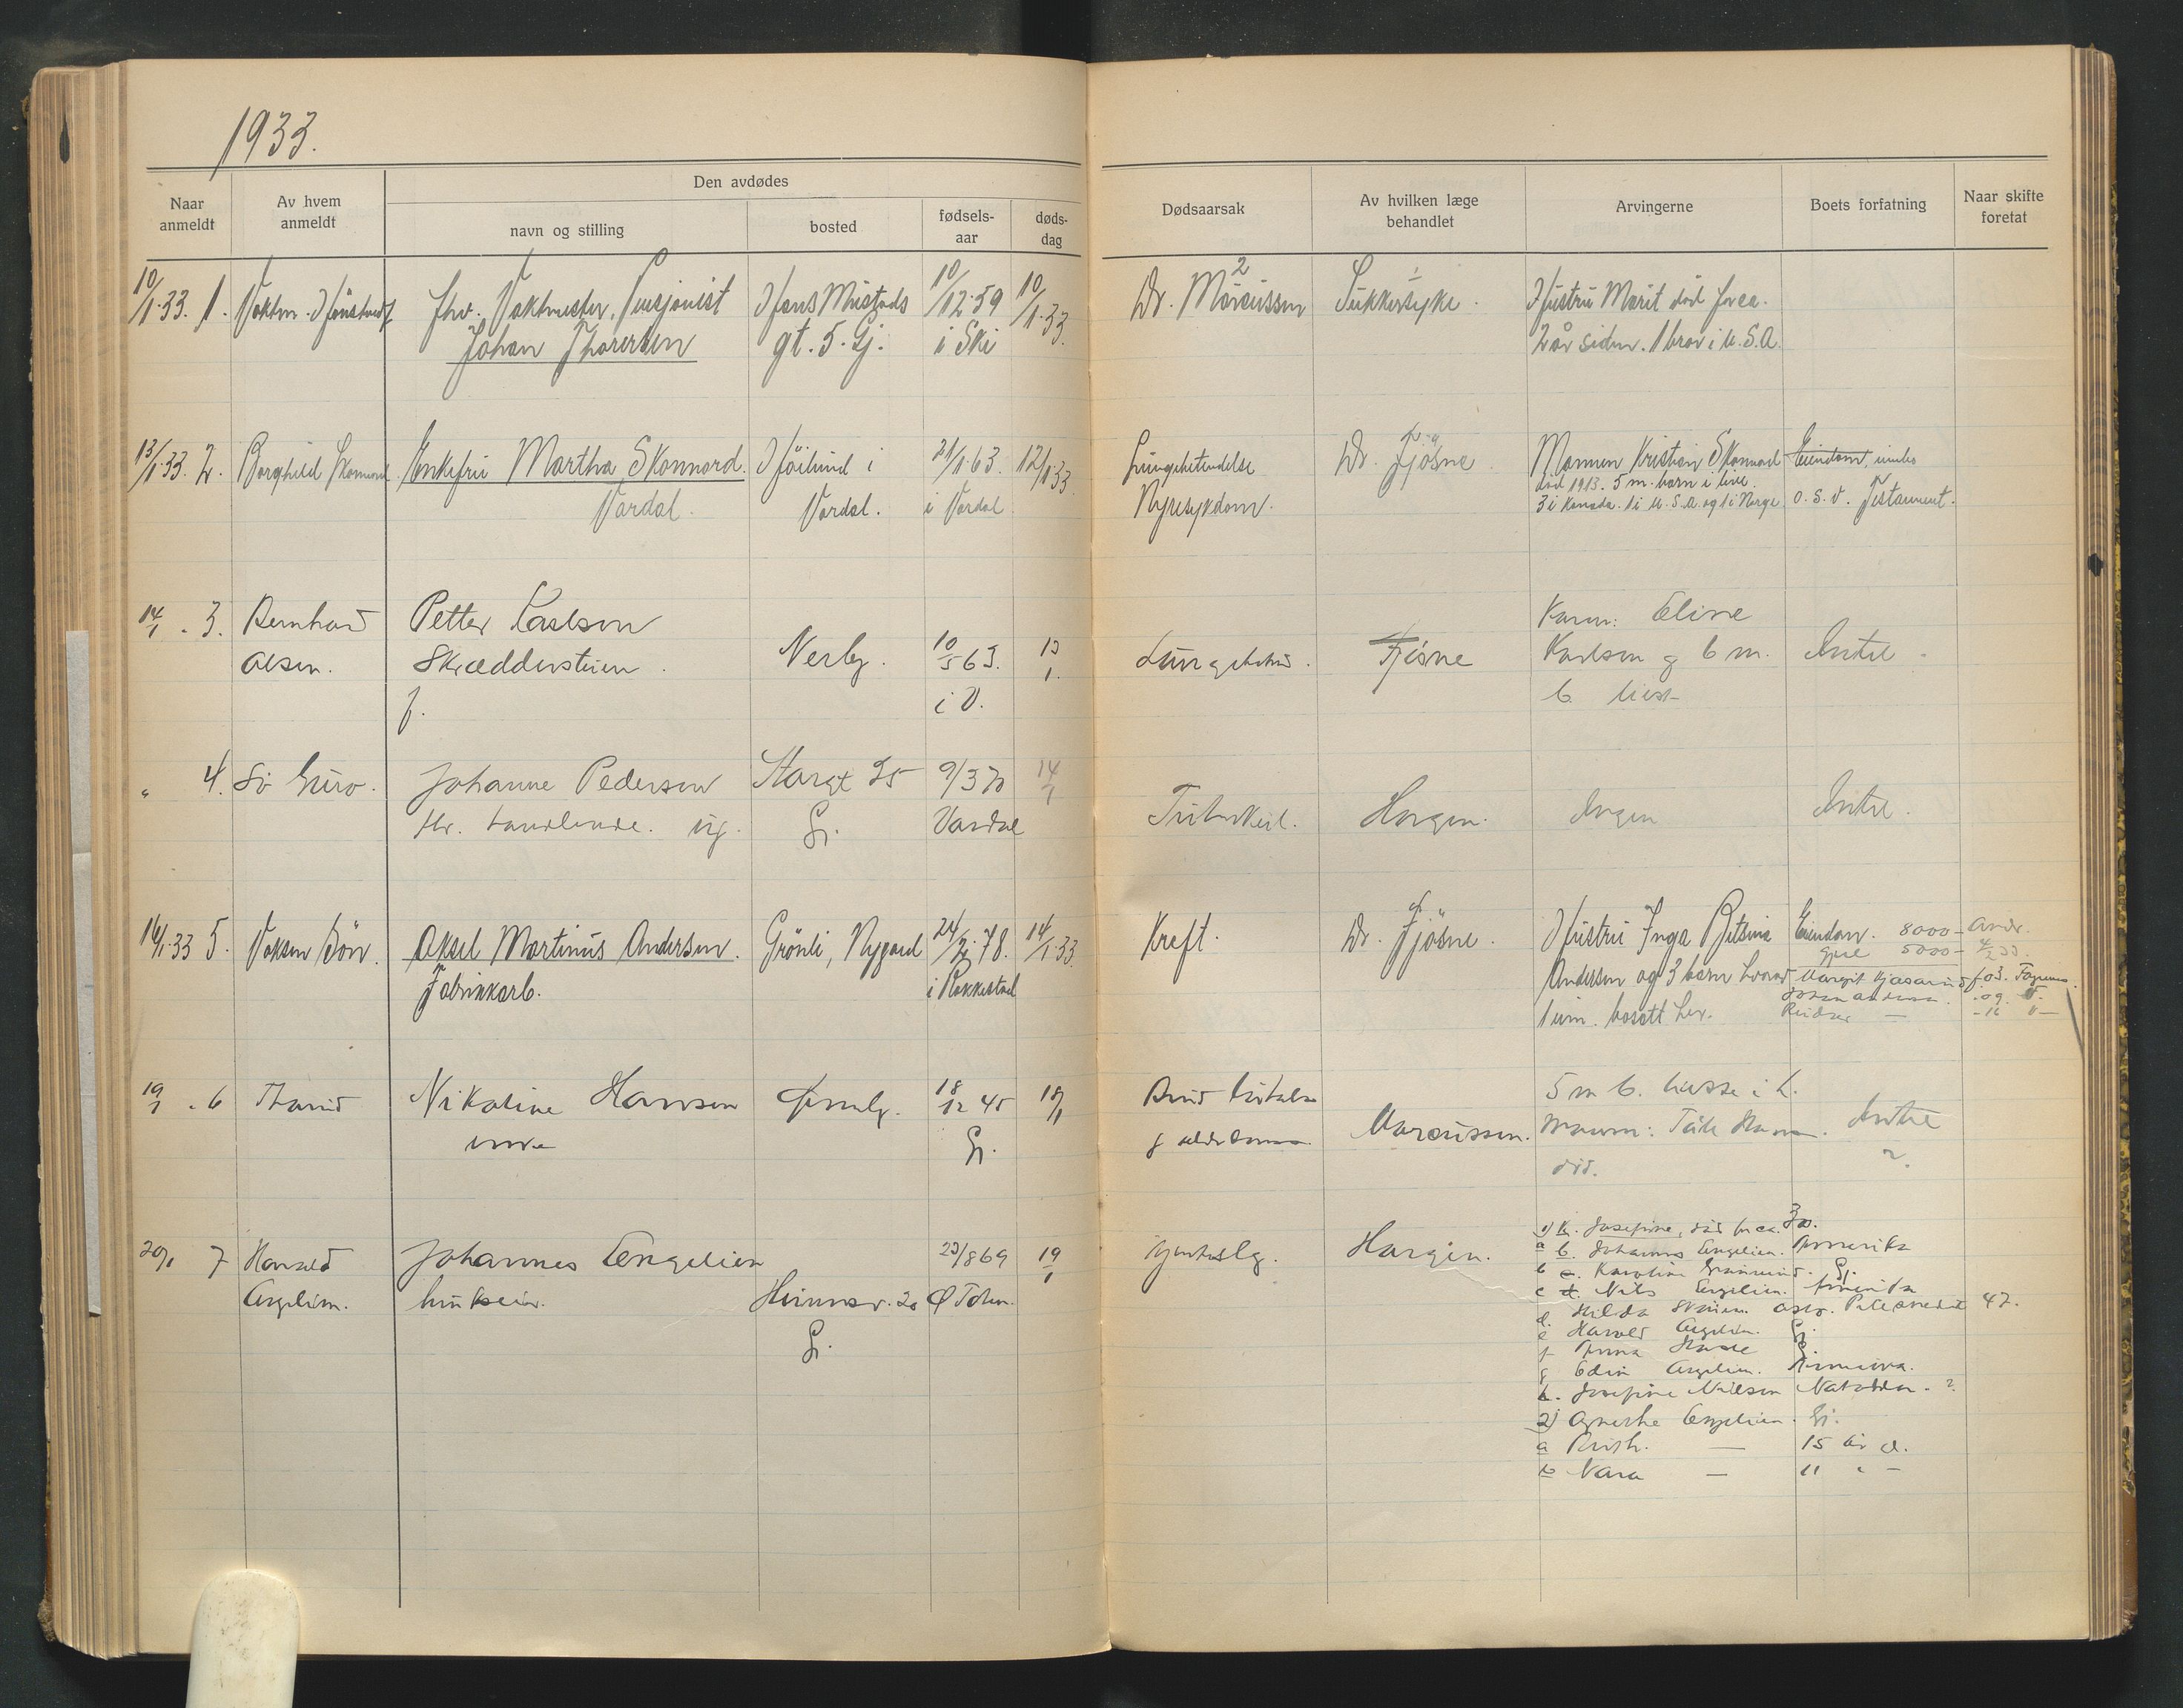 1933.
Naar anmeldt
Av hvem anmeldt
Den avdødes
navn og stilling
bosted
fødsels-aar
døds-dag
Dødsaarsak
Av hvilken læge behandlet
Arvingerne
Boets forfatning
Naar skifte foretat
10/1.33. 1. Vaktm.
fhv. Vaktmester, Pensjonist
Johan Thoresen
Hans Mustads
gt. 5. Gj.
10/12.59
i Ski
10/1.33.
2
Dr. Marcussen
1
Sukkersyke.
Hustru Marit død for ca.
2 år siden. 1 bror i U.S.A.
13/1.33. 2. Borghild Skonnord
Enkefru Martha Skonnord.
Vardal.
Høilund i
Vardal.
21/1.63.
i Vardal
12/1.33.
Lungebetendelse
Nyresykdom.
Dr. Fjøsne.
Mannen Kristian Skonnord
død 1913. 5 m. barn i live.
3 i Kanada. 1 i U.S.A. og 1 i Norge.
Eiendom, innbo
o.s.v. Testament.
14/1 . 3. Bernhard
Olsen.
Petter Karlson
Skrædderstuen.
f.
Nerby.
10/5 63.
i V.
13/1.
Lungebetend.
Fjøsne
Eline
Karlsen g 6 m.
b.
Intet.
" 4.
Johanne Pedersen
fhv. handlende. ug.
Storgt 25
Gj.
9/3 70
Vardal
14/1
Tuberkul.
Horgen.
Ingen
Intet.
16/1.33 5. Voksen Søn.
Aksel Martinus Andersen.
Fabrikkarb.
Grønli, Nygard
24/2.78.
i Rakkestad
14/1.33
Kreft.
Dr. Fjøsne.
Hustru Inga Betsina
Andersen og 3 barn hvorav
1 um. bosatt her.
Eiendom. 8000-
Gjeld 5000-
Margit
Johan Andersen. -09. V.
Reidar — -16 V—
19/1 . 6
Nikoline Hansen
18/12 45
Gj.
18/1
g alderdoms
Marcussen.
5 m b.
død.
Intet
?
20/1 7 Harald
Engelien.
Johannes Engelien
Hunnsv. 20
Gj.
23/8 69
Ø Toten.
19/1
Horgen.
1) K. Josefine, død for ca. 30.
a b. Johannes Engelien. Amerika
b c. Karoline Gj.
c d. Nils Engelien. Amerika
d. Hilda Oslo. 47.
e Harald Engelien. Gj.
f Anna Gj.
g Edin Engelien.
h. Josefine Nilsen Notodden. ?
2) Agnethe Engelien. Gj.
a Ruth. — 15 år g.
b Nara — 11 " —